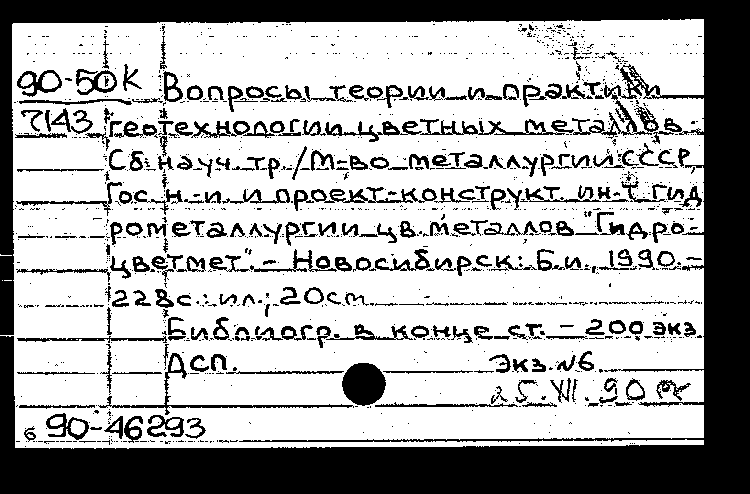 90-50К Вопросы теории и практики
7143 геотехнологии цветных металлов:
Сб. науч. тр./М-во металлургии СССР,
Гос. н.-и. и проект.-конструкт. ин-т гид
рометаллургии цв. металлов "Гидро-
цветмет". - Новосибирск: Б.и., 1990. -
228с.: ил.; 20cm
Библиогр. в конце ст. - 200 экз.
ДСП. Экз. №6
25.XII.90
б 90-46293